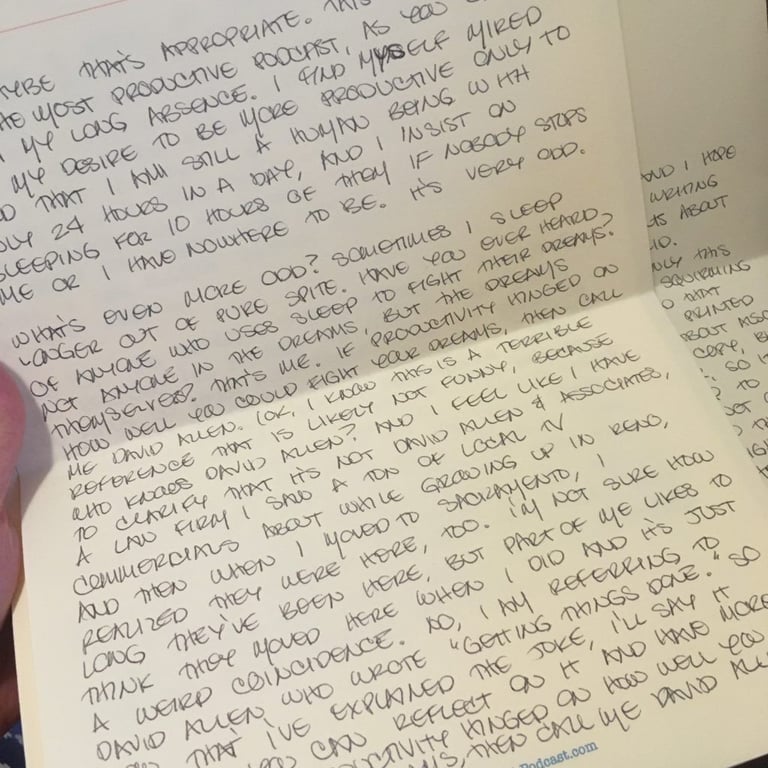 THAT'S APPROPRIATE.
MOST PRODUCTIVE PODCAST, AS YOU
MY LONG ABSENCE. I FIND MYSELF MIRED
MY DESIRE TO BE MORE PRODUCTIVE ONLY TO
THAT I AM STILL A HUMAN BEING WITH
24 HOURS IN A DAY, AND I INSIST ON
SLEEPING FOR 10 HOURS OF THEM IF NOBODY STOPS
ME OR I HAVE NOWHERE TO BE. IT'S VERY ODD.
WHAT'S EVEN MORE ODD? SOMETIMES I SLEEP
LONGER OUT OF PURE SPITE. HAVE YOU EVER HEARD
OF ANYONE WHO USES SLEEP TO FIGHT THEIR DREAMS?
NOT ANYONE IN THE DREAMS, BUT THE DREAMS
THEMSELVES? THAT'S ME. IF PRODUCTIVITY HINGED ON
HOW WELL YOU COULD FIGHT YOUR DREAMS, THEN CALL
ME DAVID ALLEN. (OK, I KNOW THIS IS A TERRIBLE
REFERENCE THAT IS LIKELY NOT FUNNY, BECAUSE
WHO KNOWS DAVID ALLEN? AND I FEEL LIKE I HAVE
TO CLARIFY THAT IT'S NOT DAVID ALLEN & ASSOCIATES,
A LAW FIRM I SAW A TON OF LOCAL TV
COMMERCIALS ABOUT WHILE GROWING UP IN RENO,
AND THEN WHEN I MOVED TO SACRAMENTO, I
REALIZED THEY WERE HERE, TOO. I'M NOT SURE HOW
LONG THEY'VE BEEN HERE, BUT PART OF ME LIKES TO
THINK THEY MOVED HERE WHEN I DID AND IT'S JUST
A WEIRD COINCIDENCE. NO, I AM REFERRING TO
DAVID ALLEN WHO WROTE "GETTING THINGS DONE." SO
THAT I'VE EXPLAINED THE JOKE, I'LL SAY IT
CAN REFLECT ON IT AND HAVE MORE
HINGED ON HOW WELL YOU
THEN CALL ME DAVID
Podcast.com
AND I HOPE
WRITING
ABOUT
THIS
SQUIRMING
THAT
PRINTED
ABOUT
COPY,
SO
TO